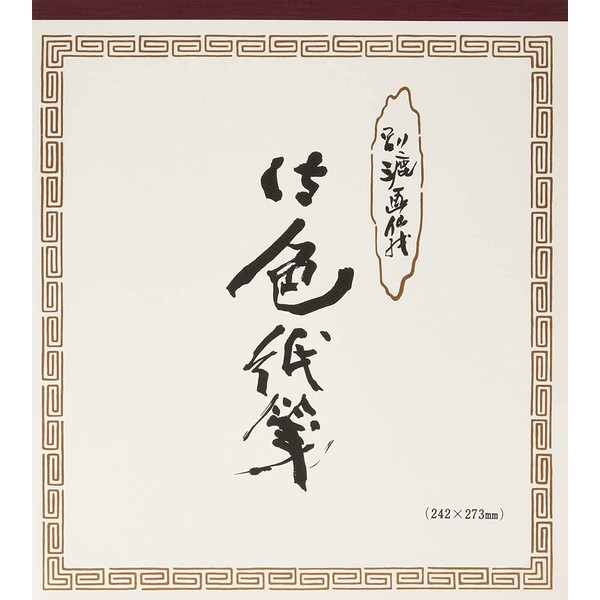 別漉画仙紙
色紙箋
(242×273mm)